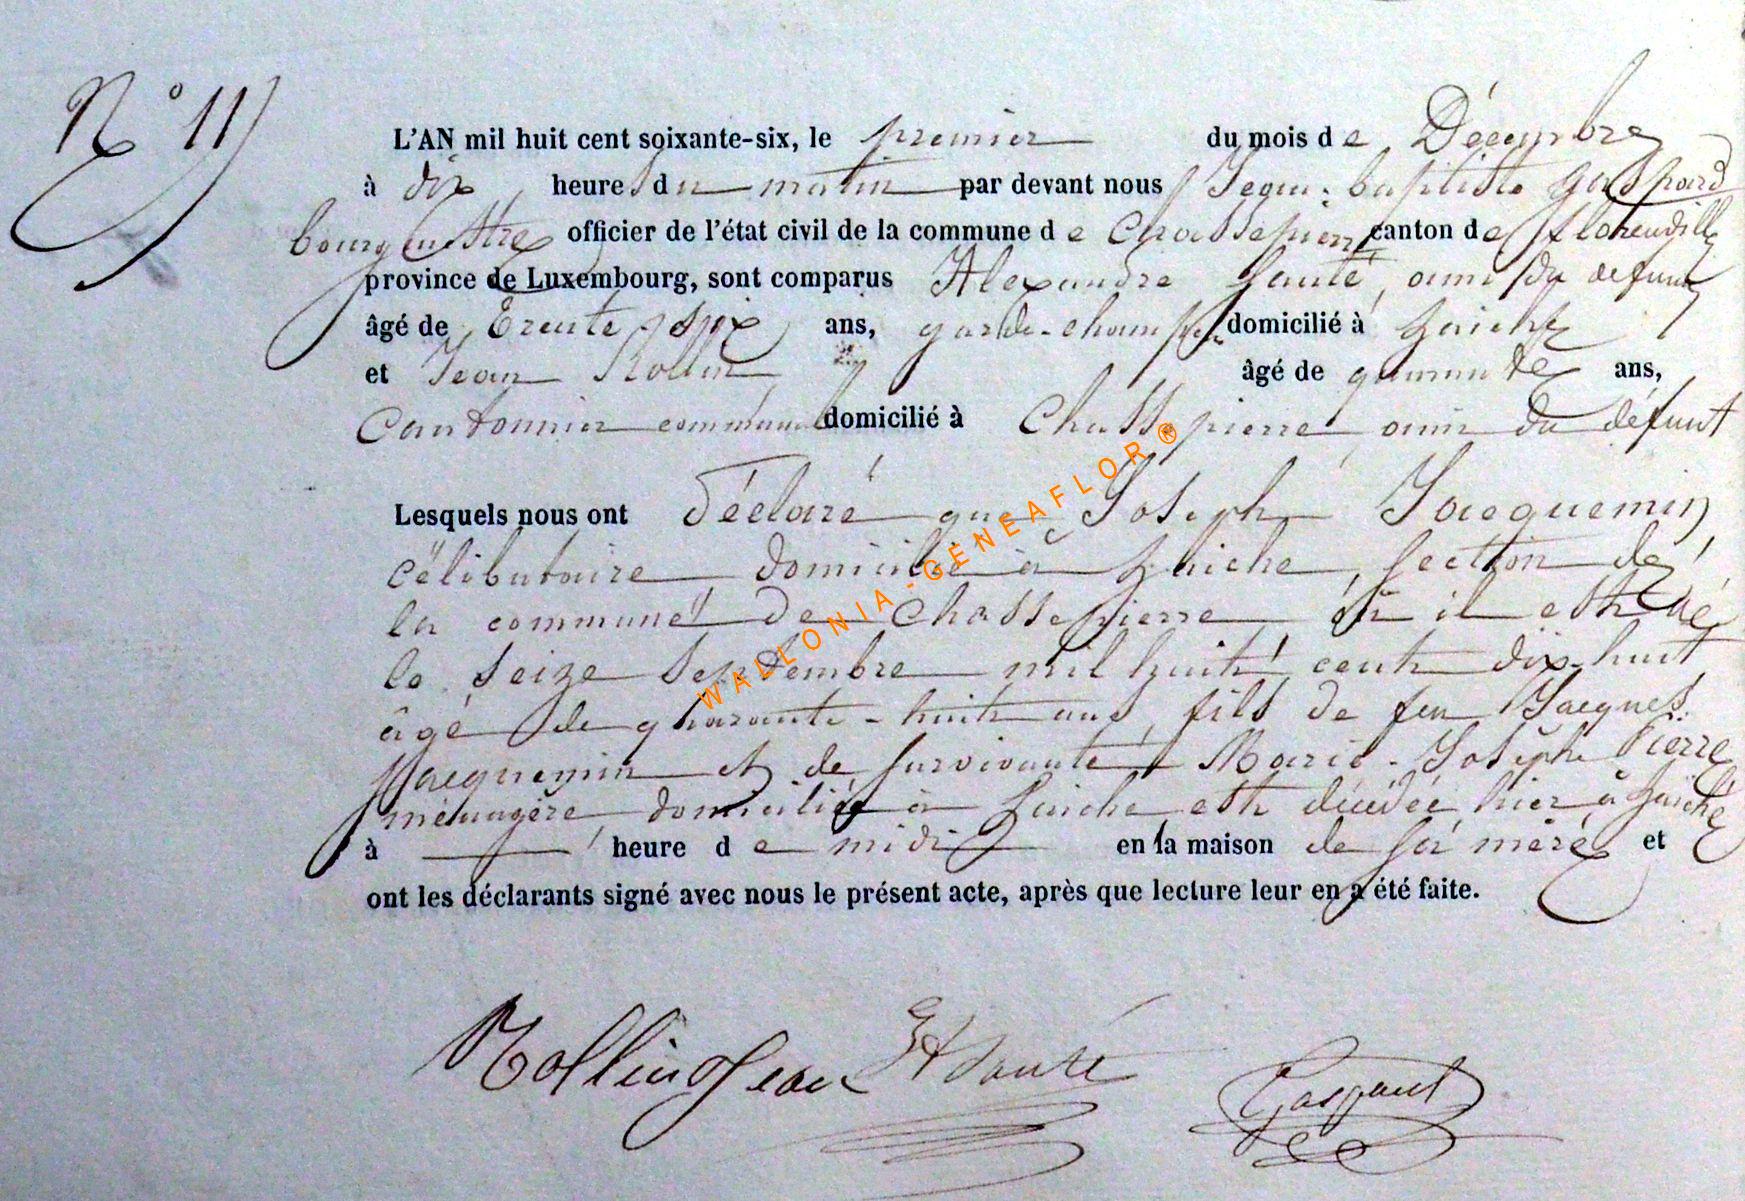 N° 11
L'AN mil huit cent soixante-six, le premier du mois de Décembre
à dix heures du matin par devant nous Jean-baptiste Gaspard
bourgmestre officier de l'état civil de la commune de Chassepierre canton de florenville
province de Luxembourg, sont comparus Alexandre Santé, ami du defunt
âgé de trente six ans, garde-champ. domicilié à Laiche
et Jean Rollin âgé de quarante ans,
Cantonnier communal domicilié à Chassepierre ami du défunt
Lesquels nous ont déclaré que Joseph Jacquemin
célibataire domicilié à Laiche, section de
la commune de Chassepierre où il est né
le seize septembre mil huit cent dix-huit
âgé de quarante-huit ans, fils de feu Jacques
Jacquemin et de survivante Marie-Josèphe Pierre
ménagère domiciliée à Laiche est décédé hier à Laiche
à heure de midi en la maison de sa mère et
ont les déclarants signé avec nous le présent acte, après que lecture leur en a été faite.
Rollin Jean Santé Gaspard
WALLONIA-GENEAFLOR ®